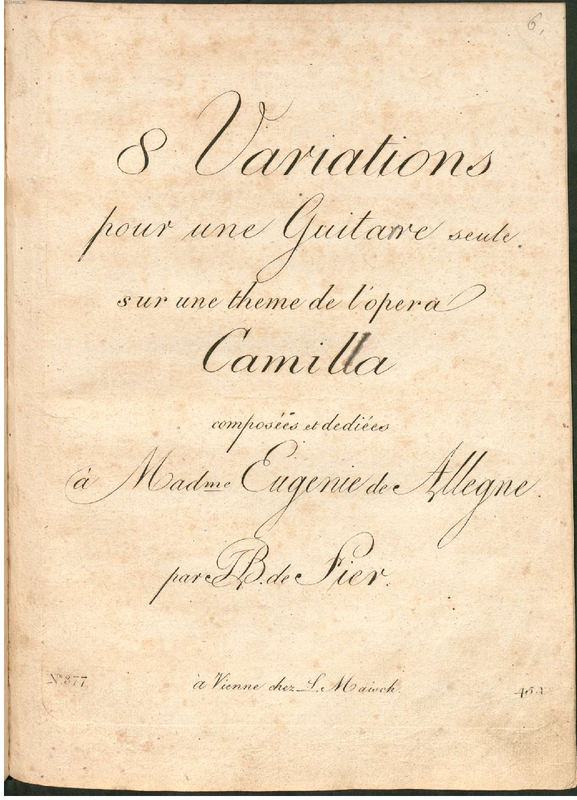 6.
8 Variations
pour une Guitarre seule.
sur une theme de l'opera
Camilla
composées et dediées
à Madme Eugenie de Allegne.
par de Fier.
à Vienne chez L. Maisch.
No 377